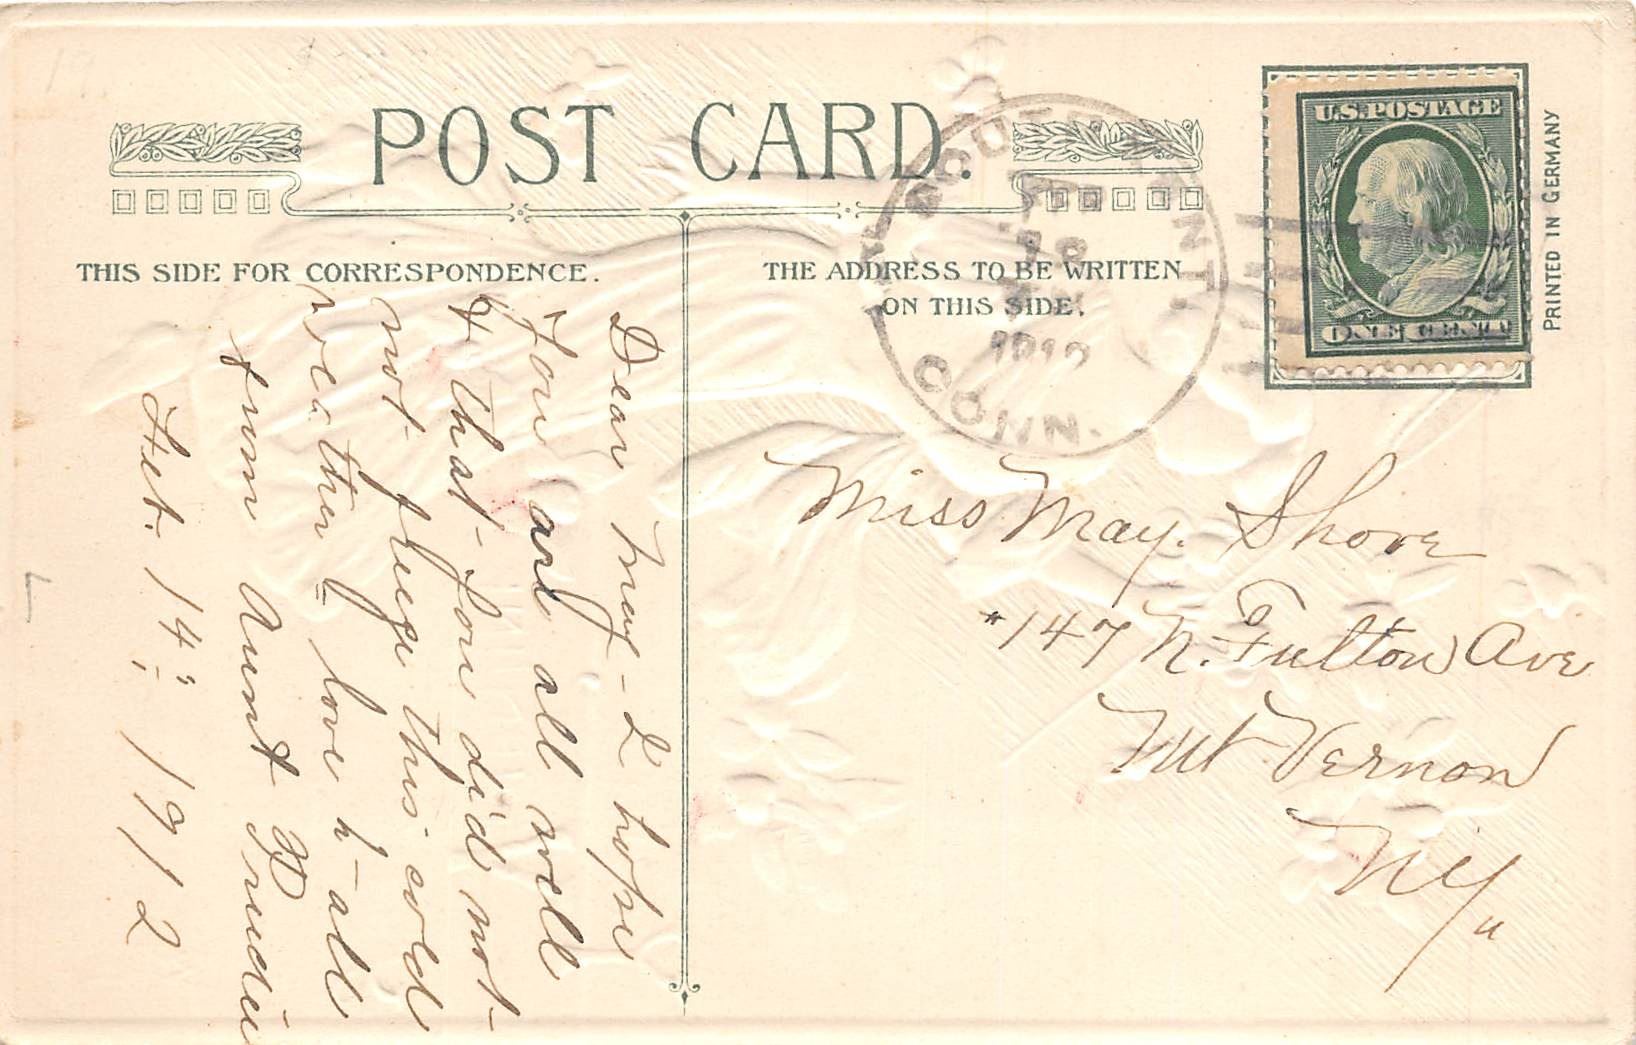 POST CARD.
THIS SIDE FOR CORRESPONDENCE.
THE ADDRESS TO BE WRITTEN
ON THIS SIDE.
U.S. POSTAGE
ONE CENT
PRINTED IN GERMANY
CONN.
1912
Dear May - I hope
You are all well
& that you did not
not freeze this cold
weather love to all
from Aunt
Feb. 14 1912
Miss May. Shove
147 N. Fulton Ave
Mt Vernon
N.Y.